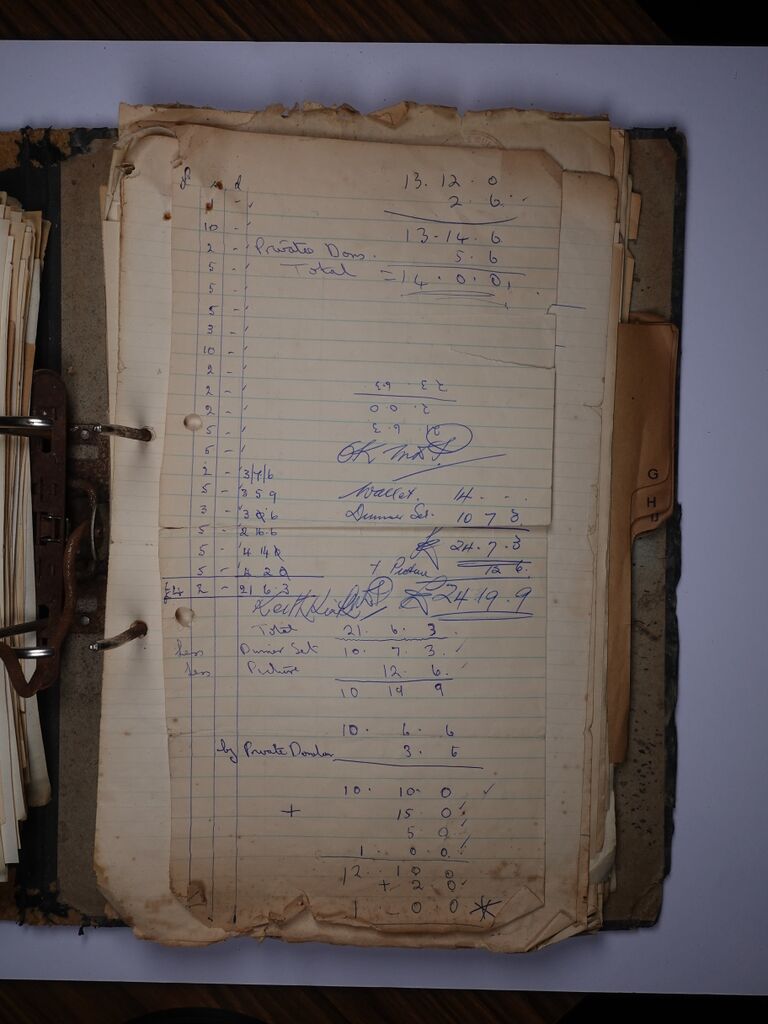 £ s d
13. 12. 0
1 -
2. 6.
10 -
13. 14. 6
2 - Private Dons. 5. 6
5 - Total = 14. 0. 0.
5 -
5 -
3 -
10 -
2 -
2 -
23. 6.3
2 -
2. 0 0
5 -
21 6.3
5 -
OK
2 - 3/7/6
5 - 3 5 9 Wallet. 14. . .
3 - 3 8 6 Dinner Set. 10 7 3
5 - 2 6.6
5 - £ 24. 7. 3
5 - Picture 12 6.
£4 2 - 21 6.3 £24 19. 9
Total 21. 6. 3
Less Dinner Set 10. 7. 3.
Less Picture 12. 6.
10 19 9
10. 6. 6
by Private Donation 3. 6
10. 10. 0
+ 15 0
5 0
1 0 0
12 10 0
+ 2 0
1 0 0 *
G
H